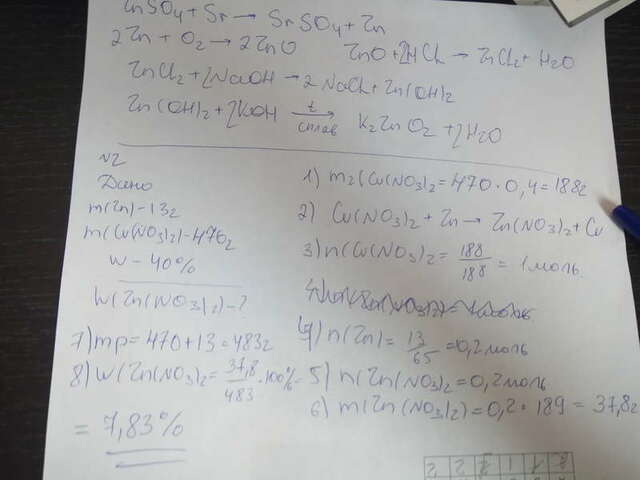 ZnSO4 + Sr → SrSO4 + Zn
2Zn + O2 → 2ZnO ZnO + 2HCl → ZnCl2 + H2O
ZnCl2 + 2NaOH → 2NaCl + Zn(OH)2
Zn(OH)2 + 2KOH t сплав → K2ZnO2 + 2H2O
N2
Дано
m(Zn) - 13г
m(Cu(NO3)2) - 470г
W - 40%
W(Zn(NO3)2) - ?
1) m2(Cu(NO3)2 = 470 · 0,4 = 188г
2) Cu(NO3)2 + Zn → Zn(NO3)2 + Cu
3) n(Cu(NO3)2 = 188/188 = 1 моль
4) n(Zn) = 13/65 = 0,2 моль
5) n(Zn(NO3)2 = 0,2 моль
6) m(Zn(NO3)2) = 0,2 · 189 = 37,8г
7) mp = 470 + 13 = 483г
8) W(Zn(NO3)2 = 37,8/483 · 100% =
= 7,83%
2 2 2 1 1 1 2